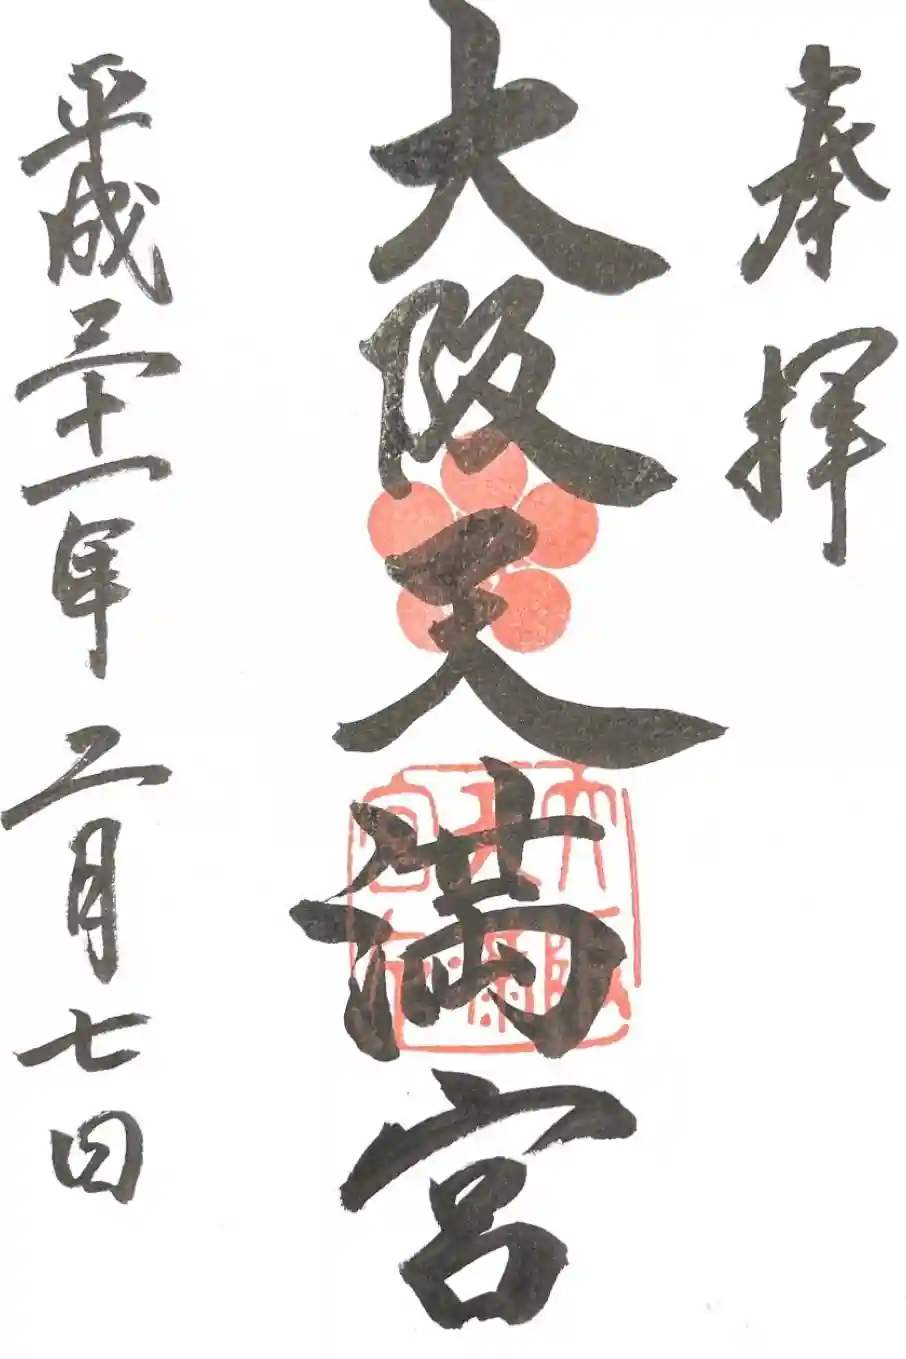 奉拝
大阪天満宮
平成三十一年二月七日